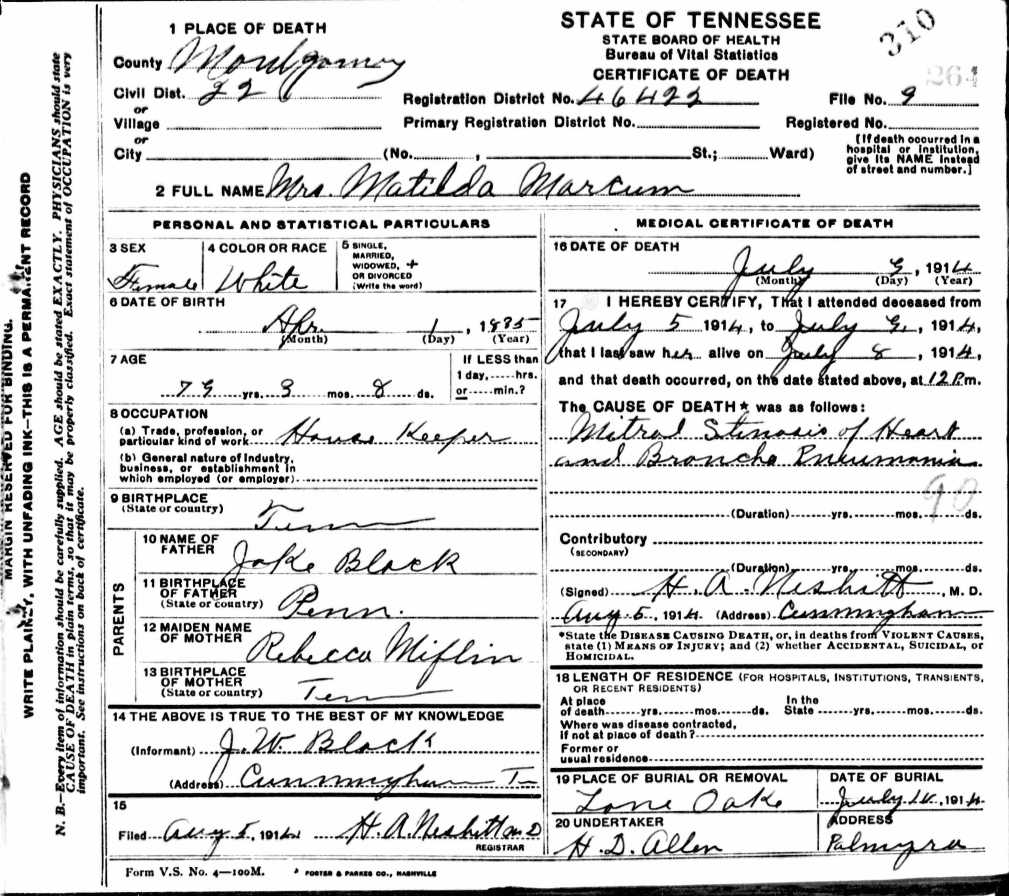 MARGIN RESERVED FOR BINDING.
WRITE PLAINLY, WITH UNFADING INK—THIS IS A PERMANENT RECORD
N. B.—Every item of information should be carefully supplied. AGE should be stated EXACTLY. PHYSICIANS should state
CAUSE OF DEATH in plain terms, so that it may be properly classified. Exact statement of OCCUPATION is very
important. See instructions on back of certificate.
STATE OF TENNESSEE
STATE BOARD OF HEALTH
Bureau of Vital Statistics
CERTIFICATE OF DEATH
310
264
1 PLACE OF DEATH
County Montgomery
Civil Dist. 22
or
Village
or
City (No. , St.; Ward)
Registration District No. 46422
File No. 9
Primary Registration District No.
Registered No.
[If death occurred in a
hospital or institution,
give its NAME instead
of street and number.]
2 FULL NAME Mrs. Matilda Marcum
PERSONAL AND STATISTICAL PARTICULARS
3 SEX
Female
4 COLOR OR RACE
White
5 SINGLE,
MARRIED,
WIDOWED, +
OR DIVORCED
(Write the word)
6 DATE OF BIRTH
Apr. 1, 1835
(Month) (Day) (Year)
7 AGE
79 yrs. 3 mos. 8 ds.
If LESS than
1 day, hrs.
or min.?
8 OCCUPATION
(a) Trade, profession, or
particular kind of work House Keeper
(b) General nature of Industry,
business, or establishment in
which employed (or employer)
9 BIRTHPLACE
(State or country)
Tenn
PARENTS
10 NAME OF
FATHER
Jake Black
11 BIRTHPLACE
OF FATHER
(State or country)
Penn.
12 MAIDEN NAME
OF MOTHER
Rebecca Miflin
13 BIRTHPLACE
OF MOTHER
(State or country)
Tenn
14 THE ABOVE IS TRUE TO THE BEST OF MY KNOWLEDGE
(Informant) J. W. Black
(Address) Cunningham Tn
15
Filed Aug 5, 1914 H A Nesbitt MD
REGISTRAR
MEDICAL CERTIFICATE OF DEATH
16 DATE OF DEATH
July 9, 1914
(Month) (Day) (Year)
17 I HEREBY CERTIFY, That I attended deceased from
July 5 1914, to July 9, 1914,
that I last saw her alive on July 8, 1914,
and that death occurred, on the date stated above, at 12 P.m.
The CAUSE OF DEATH* was as follows:
Mitral Stinosis of Heart
and Broncho Pneumonia
90
(Duration) yrs. mos. ds.
Contributory
(SECONDARY)
(Duration) yrs. mos. ds.
(Signed) H. A. Nesbitt, M. D.
Aug 5, 1914 (Address) Cunningham
*State the DISEASE CAUSING DEATH, or, in deaths from VIOLENT CAUSES,
state (1) MEANS OF INJURY; and (2) whether ACCIDENTAL, SUICIDAL, or
HOMICIDAL.
18 LENGTH OF RESIDENCE (FOR HOSPITALS, INSTITUTIONS, TRANSIENTS,
OR RECENT RESIDENTS)
At place
of death yrs. mos. ds.
In the
State yrs. mos. ds.
Where was disease contracted,
if not at place of death?
Former or
usual residence
19 PLACE OF BURIAL OR REMOVAL
Lone Oake
DATE OF BURIAL
July 10, 1914
20 UNDERTAKER
H. D. Allen
ADDRESS
Palmyra
Form V.S. No. 4—100M.
FOSTER & PARKES CO., NASHVILLE